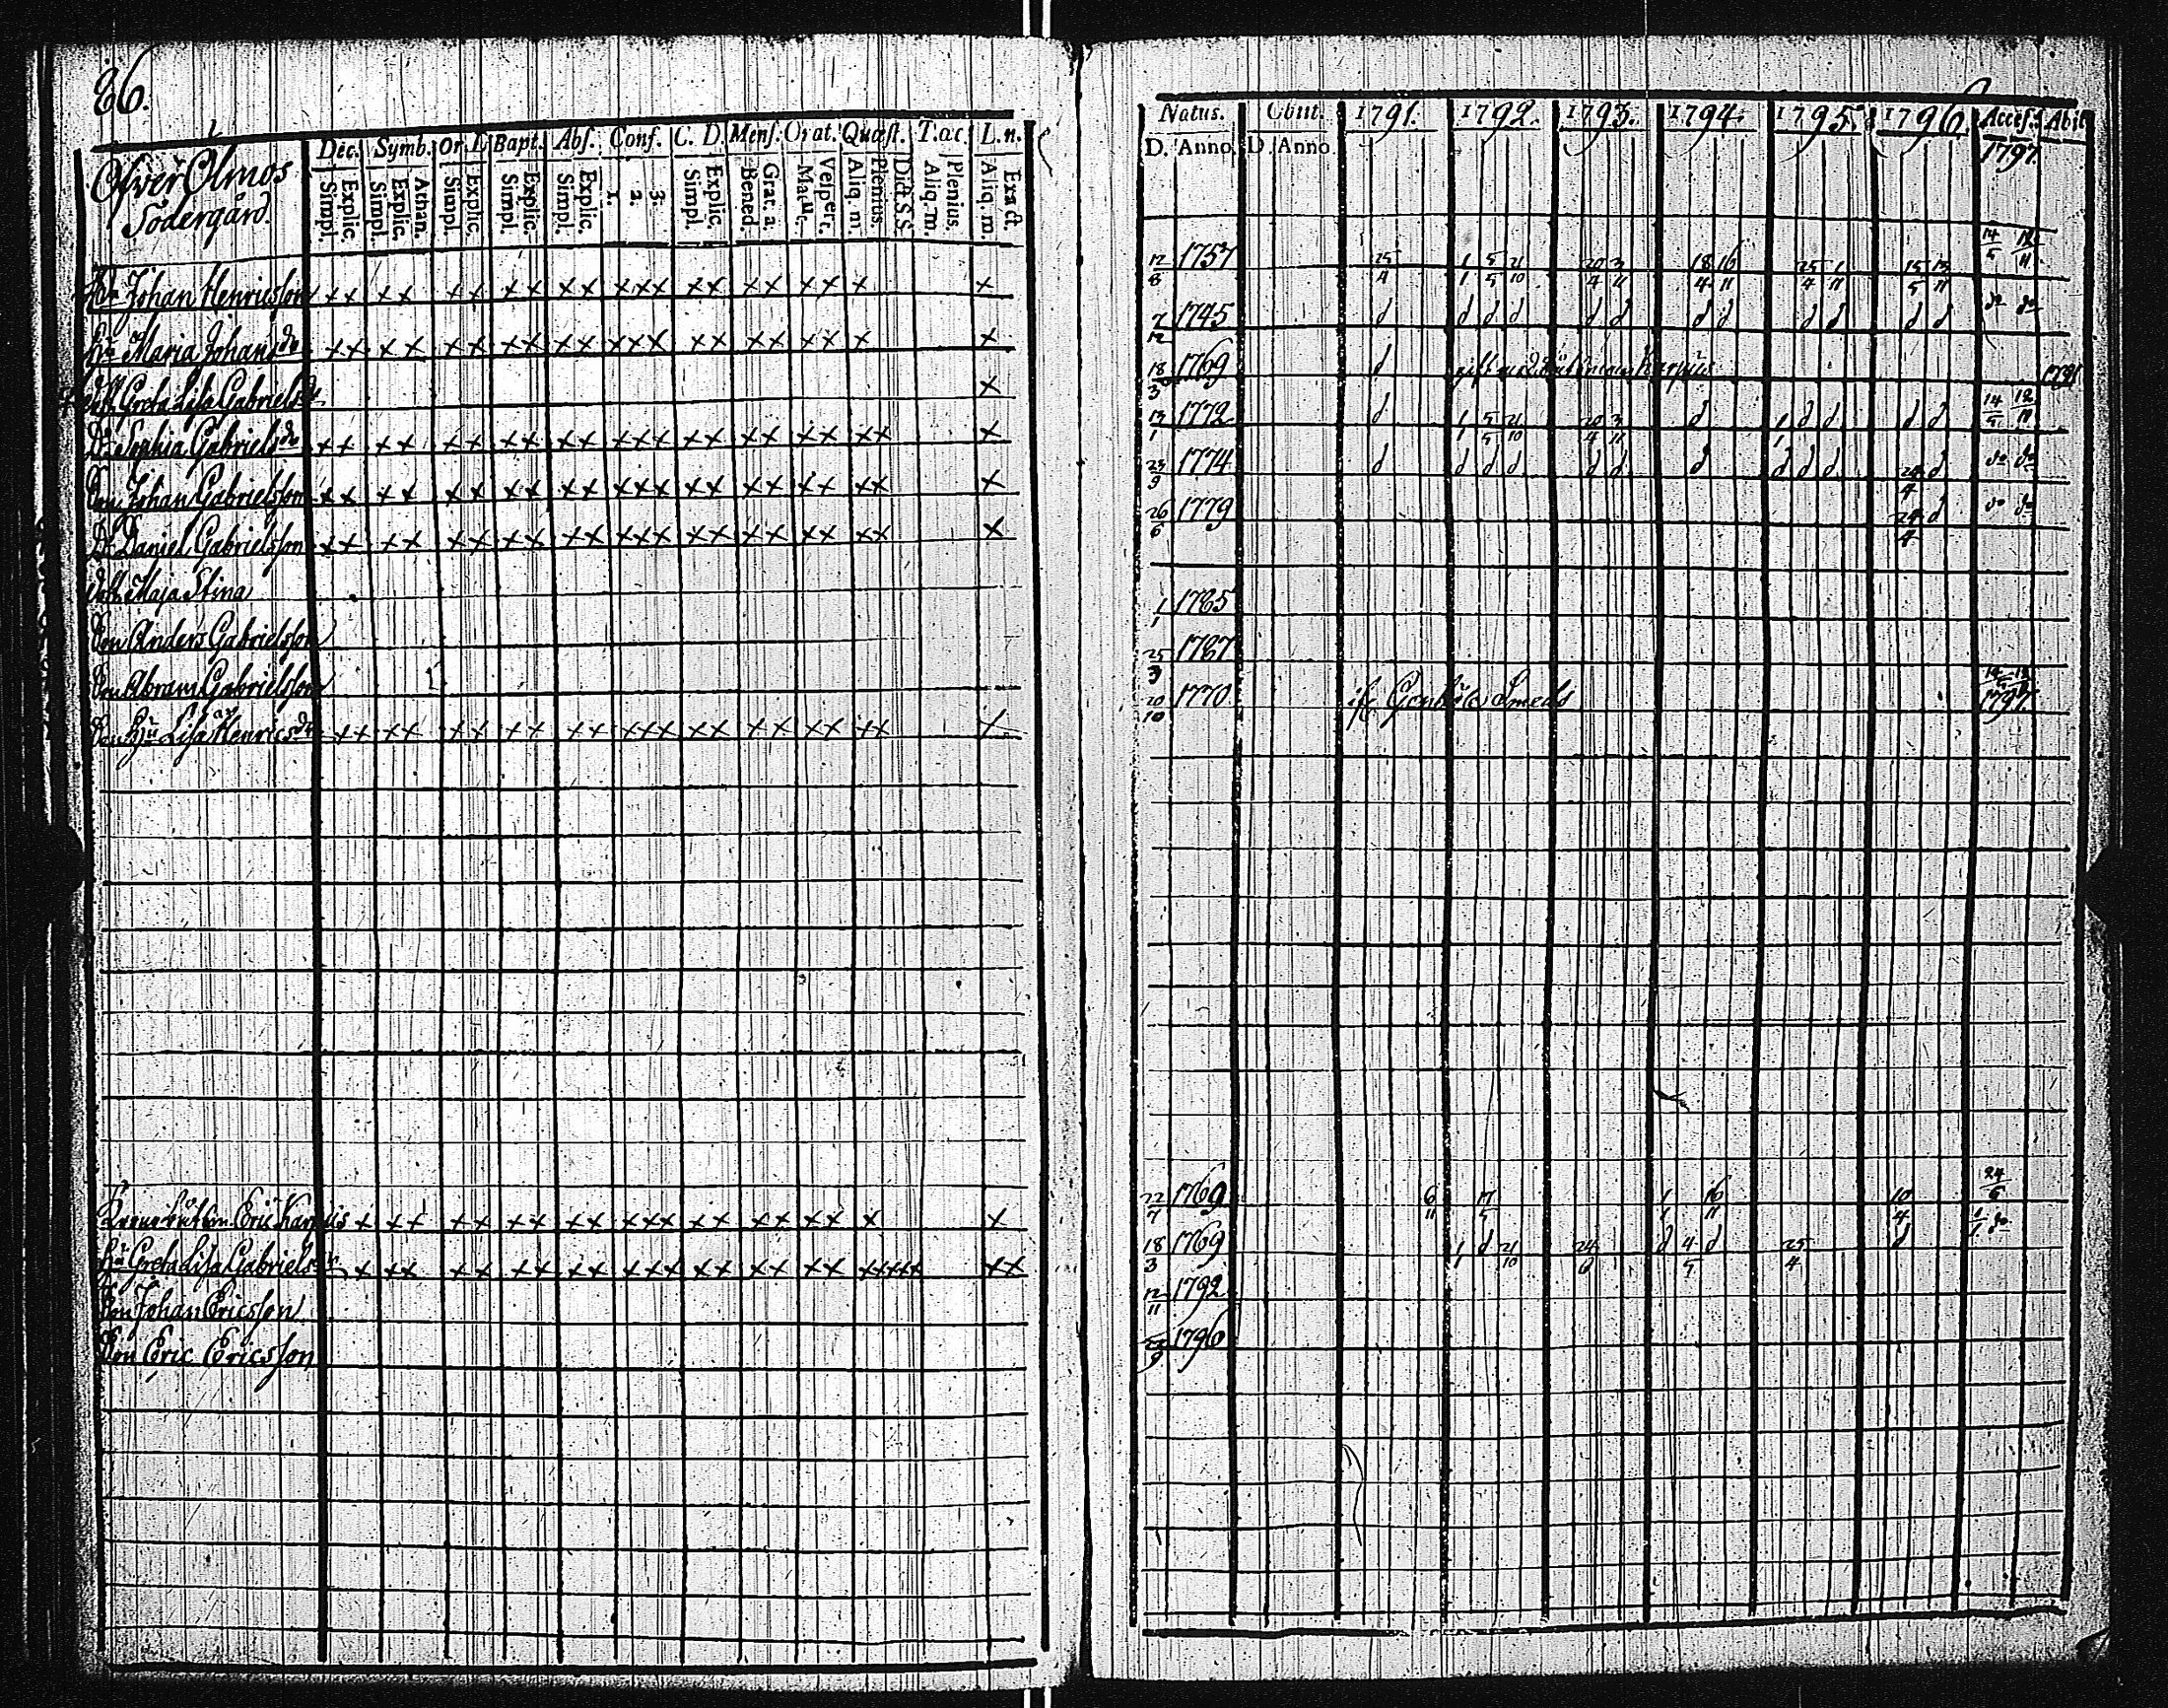 86.
Öfver Olmos
Södergård.
Dec. Symb. Or. D. Bapt. Abs. Conf. C. D. Mens. Orat. Quæst. T. œc. L. n.
Simpl. Explic. Simpl. Explic. Athan. Simpl. Explic. Simpl. Explic. Simpl. Explic. 1. 2. 3. Simpl. Explic. Bened. Grat. a. Mat. Vesper. Aliq. m. Plenius. Dict. S.S. Aliq. m. Plenius. Aliq. m. Exact.
Natus. Obiit. 1791. 1792. 1793. 1794. 1795. 1796. Access. Abit
D. Anno. D. Anno. 1797.
Johan Henricsson x x x x x x x x x x x x x x x x x x x x x 12/8 1757 25/4 1/1 5/5 21/10 20/4 3/11 18/4 16/11 25/4 1/11 15/5 13/11 14/5 12/11
Hu Maria Johansdr x x x x x x x x x x x x x x x x x x x x x 7/12 1745 d d d d d d d d d d d d do do
dott Greta Lisa Gabrielsdr x 18/3 1769 d gift med Karpuis 1791
Dr Sophia Gabrielsdr x x x x x x x x x x x x x x x x x x x x x x 13/1 1772 d 1/1 5/5 21/10 20/4 3/11 d 1/1 d d d d 14/5 12/11
Son Johan Gabrielsson x x x x x x x x x x x x x x x x x x x x x x 23/9 1774 d d d d d d d d d d 24/4 d do do
Dr Daniel Gabrielsson x x x x x x x x x x x x x x x x x x x x x x 26/6 1779 24/4 d do do
dott Maja Stina
Son Anders Gabrielsson 1/1 1785
Son Abram Gabrielsson 25/3 1787
Son Hu Lisa Henricsdr x x x x x x x x x x x x x x x x x x x x x x 20/10 1770 Smeds 1797
Eric Karpuis x x x x x x x x x x x x x x x x x x x x 22/7 1769 6/11 17/5 1/1 16/11 10/4 24/6
Hu Greta Lisa Gabrielsdr x x x x x x x x x x x x x x x x x x x x x x x x x 18/3 1769 1/1 d 21/10 d 4/5 d 25/4 d 1/1 do
Son Johan Ericsson 12/11 1792
Son Eric Ericsson 1796